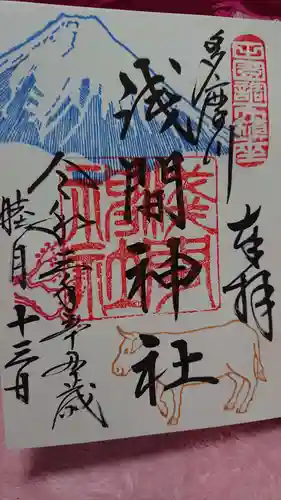 奉拝
多摩川
浅間神社
浅間神社
令和三年辛丑歳
睦月十三日